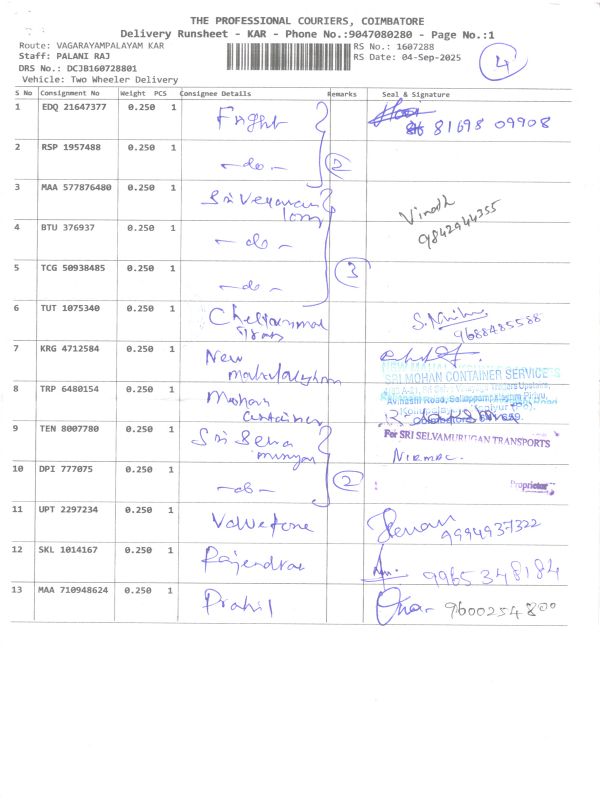 THE PROFESSIONAL COURIERS, COIMBATORE
Delivery Runsheet - KAR - Phone No.:9047080280 - Page No.:1
Route: VAGARAYAMPALAYAM KAR RS No.: 1607288
Staff: PALANI RAJ RS Date: 04-Sep-2025
DRS No.: DCJB160728801
Vehicle: Two Wheeler Delivery
4
S No Consignment No Weight PCS Consignee Details Remarks Seal & Signature
1 EDQ 21647377 0.250 1 Fright 81698 09908
2 RSP 1957488 0.250 1 -do- 2
3 MAA 577876480 0.250 1 Sri Vinoth
9842944355
4 BTU 376937 0.250 1 -do-
5 TCG 50938485 0.250 1 -do- 3
6 TUT 1075340 0.250 1 S.
9688485588
7 KRG 4712584 0.250 1 New
SRI MOHAN CONTAINER SERVICE
8 TRP 6480154 0.250 1 Mohan
container
Avinashi Road,
9 TEN 8007780 0.250 1 Sri For SRI SELVAMURUGAN TRANSPORTS
NIRMAL.
10 DPI 777075 0.250 1 -do- 2 Proprietor
11 UPT 2297234 0.250 1 9994937322
12 SKL 1014167 0.250 1 Rajendran 9965348184
13 MAA 710948624 0.250 1 9600254800